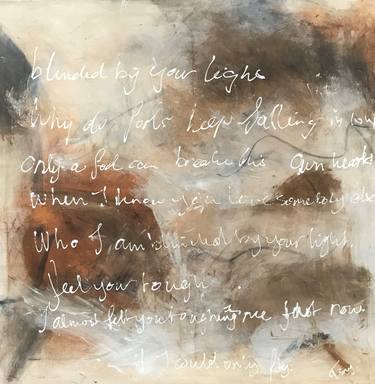 blinded by your light
Why do fools keep falling in love
only a fool can break his own heart
When I know you love somebody else
Who I am blinded by your light.
feel your tough .
I almost felt you touching me just now.
If I could only fly.